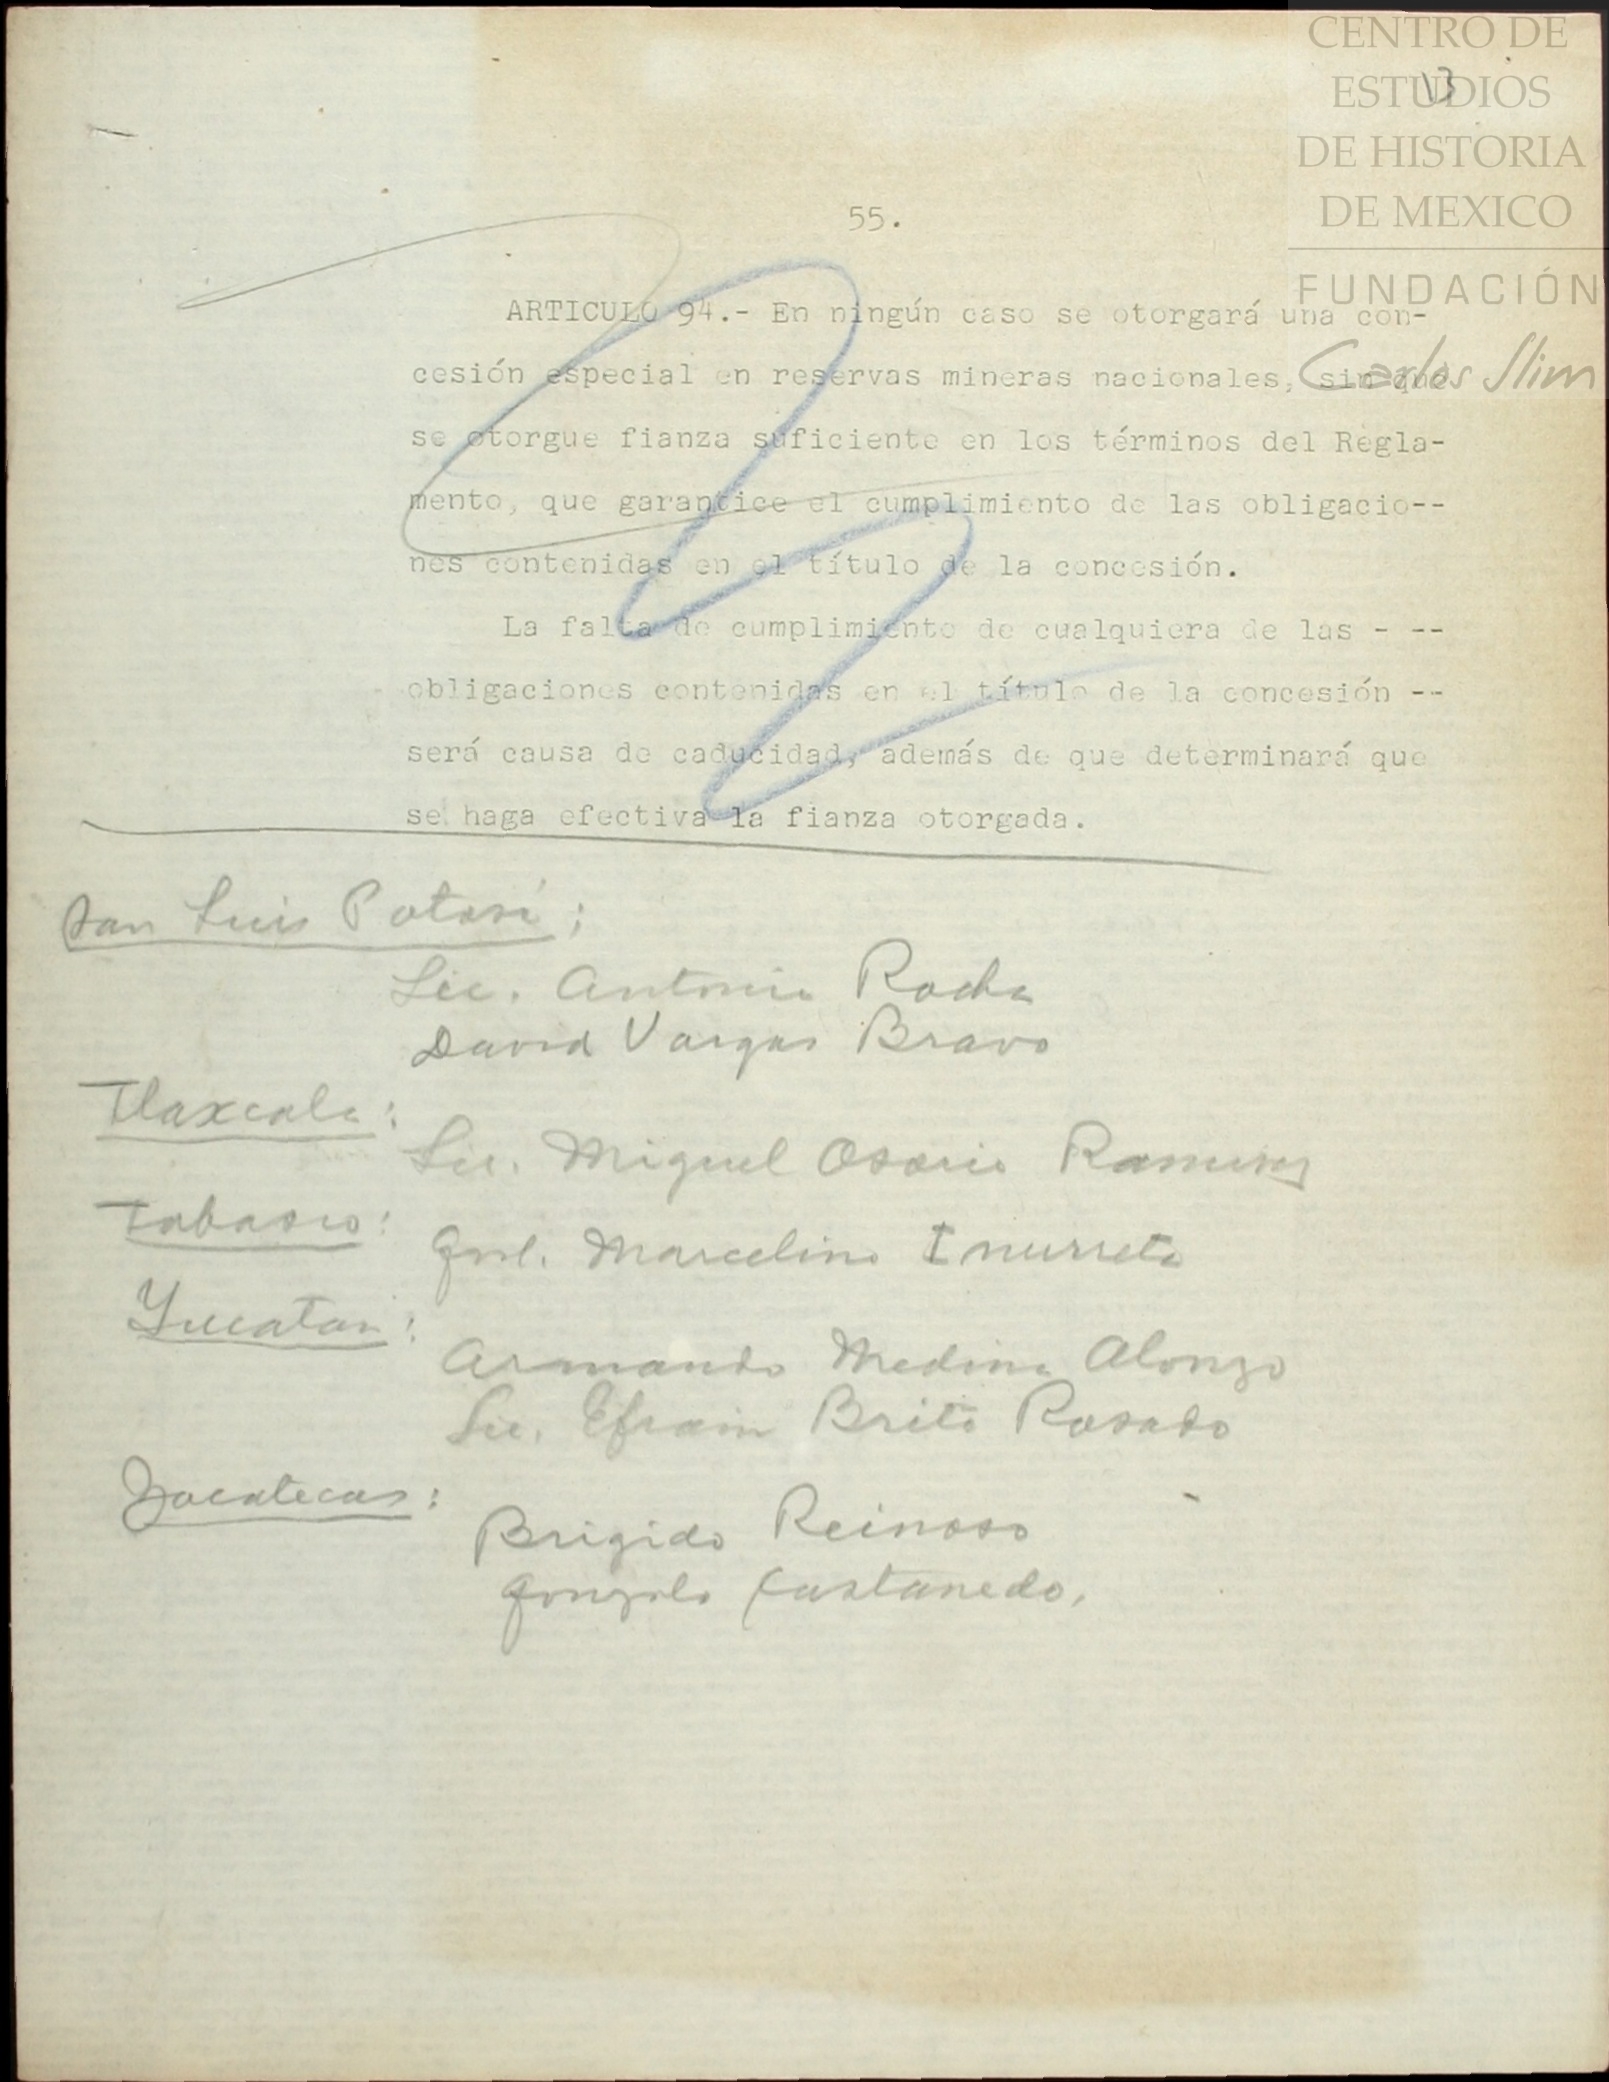 CENTRO DE
ESTUDIOS
DE HISTORIA
DE MEXICO
FUNDACIÓN
Carlos Slim
13
55.
ARTICULO 94.- En ningún caso se otorgará una con-
cesión especial en reservas mineras nacionales, sin que
se otorgue fianza suficiente en los términos del Regla-
mento, que garantice el cumplimiento de las obligacio--
nes contenidas en el título de la concesión.
La falta de cumplimiento de cualquiera de las - --
obligaciones contenidas en el título de la concesión --
será causa de caducidad, además de que determinará que
se haga efectiva la fianza otorgada.
San Luis Potosí:
Lic. Antonio Rocha
David Vargas Bravo
Tlaxcala:
Lic. Miguel Osorio Ramirez
Tabasco:
Gral. Marcelino Inurreta
Yucatan:
Armando Medina Alonzo
Lic. Efrain Brito Rosado
Zacatecas:
Brigido Reinoso
Gonzalo Castanedo,